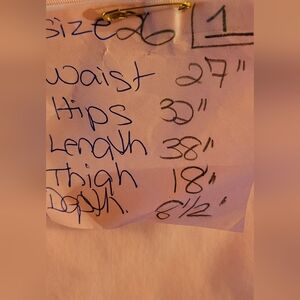 Size 26 1
Waist 27"
Hips 32"
Length 38"
Thigh 18"
Depth. 6 1/2"